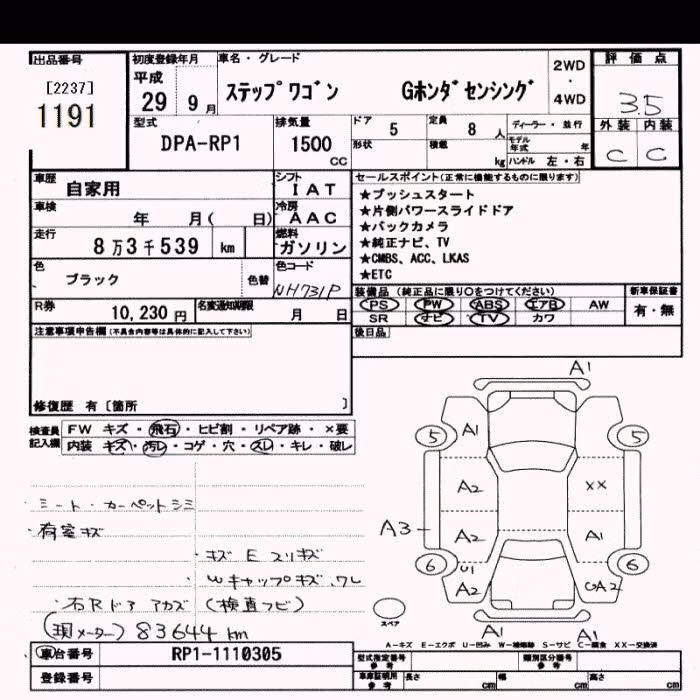 出品番号 初度登録年月 車名・グレード 2WD・4WD 評価点
[2237] 平成
1191 29 9月 ステップワゴン Gホンダセンシング 3.5
型式 排気量 ドア 5 定員 8人 ディーラー・並行 外装 内装
DPA-RP1 1500cc 形状 積載 kg モデル年式 年 ハンドル 左・右 C C
車歴 自家用 シフト IAT セールスポイント(正常に機能するものに限ります)
車検 年 月( 日) 冷房 AAC ★プッシュスタート
★片側パワースライドドア
★バックカメラ
走行 8万3千539 km 燃料 ガソリン ★純正ナビ、TV
★CMBS、ACC、LKAS
★ETC
色 ブラック 色替 色コード NH731P
装備品(純正品に限り○をつけてください) 新車保証書
R券 10,230円 名変通知期限 月 日 PS PW ABS エアB AW 有・無
SR ナビ TV カワ
注意事項申告欄(不具合内容等は具体的に記入して下さい) 後日品
修復歴 有〔箇所 〕
検査員記入欄 FW キズ・飛石・ヒビ割・リペア跡・×要
内装 キズ・汚レ・コゲ・穴・スレ・キレ・破レ
・ミート・カーペットシミ
・荷室キズ
・キズ E スリキズ
・Wキャップキズ、ワレ
・右Rドア アカズ (検査フビ)
(現メーター) 83644 km
A1
5 A1 5
A2 XX
A3 A2 A1
6 U1 6
A2 GA2
スペア A1 A1
A-キズ E-エクボ U-凹み W-補修跡 S-サビ C-腐食 XX-交換済
車台番号 RP1-1110305 型式指定番号 参考 類別区分番号 参考
登録番号 車庫証明用 参考 長さ cm 幅 cm 高さ cm